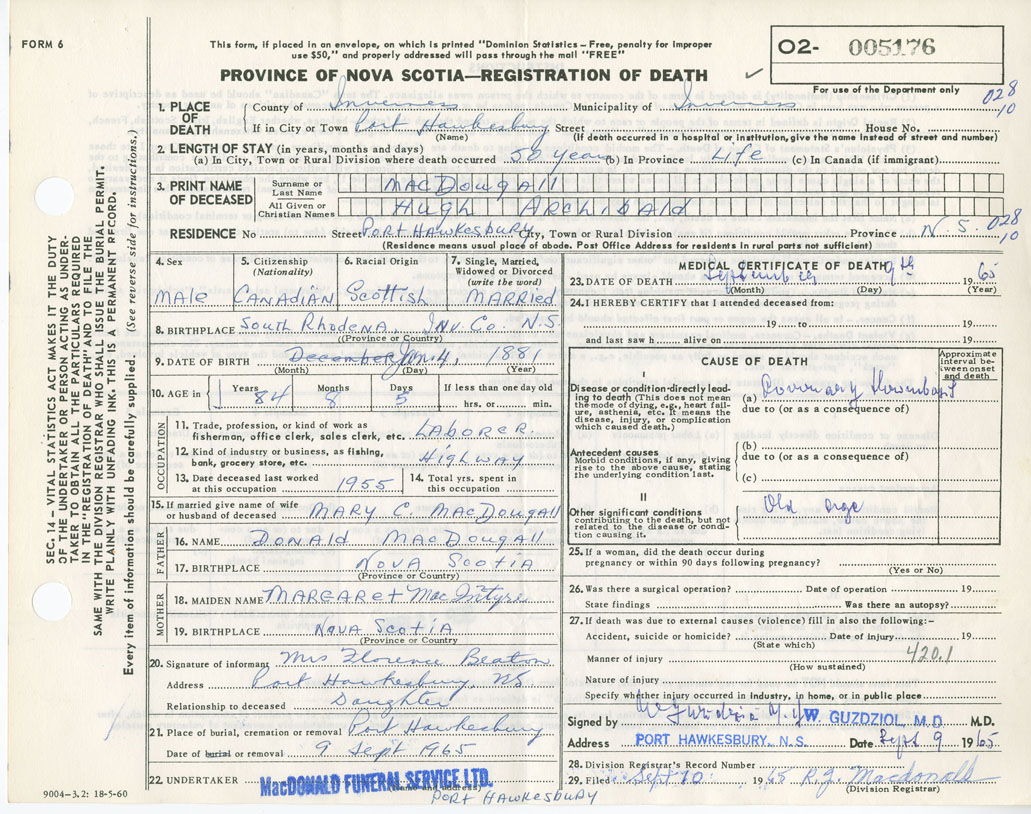 FORM 6
This form, if placed in an envelope, on which is printed "Dominion Statistics – Free, penalty for improper
use $50," and properly addressed will pass through the mail "FREE"
02- 005176
PROVINCE OF NOVA SCOTIA—REGISTRATION OF DEATH ✓
For use of the Department only
028
10
1. PLACE OF DEATH
County of Inverness Municipality of Inverness
If in City or Town Port Hawkesbury Street House No.
(Name) (If death occurred in a hospital or institution, give the name instead of street and number)
2. LENGTH OF STAY (in years, months and days)
(a) In City, Town or Rural Division where death occurred 50 years (b) In Province Life (c) In Canada (if immigrant)
3. PRINT NAME OF DECEASED
Surname or Last Name MacDougall
All Given or Christian Names Hugh Archibald
RESIDENCE No Street Port Hawkesbury City, Town or Rural Division Province N.S. 028
10
(Residence means usual place of abode. Post Office Address for residents in rural parts not sufficient)
4. Sex
Male
5. Citizenship
(Nationality)
Canadian
6. Racial Origin
Scottish
7. Single, Married, Widowed or Divorced
(write the word)
Married
8. BIRTHPLACE South Rhodena, Inv. Co. N.S.
(Province or Country)
9. DATE OF BIRTH December Jan. 4, 1881
(Month) (Day) (Year)
10. AGE in
Years 84 Months 8 Days 5 If less than one day old
hrs. or min.
OCCUPATION
11. Trade, profession, or kind of work as
fisherman, office clerk, sales clerk, etc. Laborer.
12. Kind of industry or business, as fishing,
bank, grocery store, etc. Highway
13. Date deceased last worked
at this occupation 1955
14. Total yrs. spent in
this occupation
15. If married give name of wife
or husband of deceased Mary C. MacDougall
FATHER
16. NAME Donald MacDougall
17. BIRTHPLACE Nova Scotia
(Province or Country)
MOTHER
18. MAIDEN NAME Margaret MacIntyre
19. BIRTHPLACE Nova Scotia
(Province or Country)
20. Signature of informant Mrs Florence Beaton
Address Port Hawkesbury, NS
Relationship to deceased Daughter
21. Place of burial, cremation or removal Port Hawkesbury
Date of burial or removal 9 Sept 1965
22. UNDERTAKER MacDONALD FUNERAL SERVICE LTD.
(Name and address)
Port Hawkesbury
9004–3.2: 18-5-60
MEDICAL CERTIFICATE OF DEATH
23. DATE OF DEATH September 9th 19 65
(Month) (Day) (Year)
24. I HEREBY CERTIFY that I attended deceased from:
19 to 19
and last saw h alive on 19
CAUSE OF DEATH
Approximate interval between onset and death
I
Disease or condition directly leading to death (This does not mean the mode of dying, e.g., heart failure, asthenia, etc. It means the disease, injury, or complication which caused death.)
(a) Coronary Thrombosis
due to (or as a consequence of)
Antecedent causes
Morbid conditions, if any, giving rise to the above cause, stating the underlying condition last.
(b)
due to (or as a consequence of)
(c)
II
Other significant conditions
contributing to the death, but not related to the disease or condition causing it.
Old age
25. If a woman, did the death occur during
pregnancy or within 90 days following pregnancy?
(Yes or No)
26. Was there a surgical operation? Date of operation 19
State findings Was there an autopsy?
27. If death was due to external causes (violence) fill in also the following:–
Accident, suicide or homicide? Date of injury 19
(State which)
Manner of injury 420.1
(How sustained)
Nature of injury
Specify whether injury occurred in industry, in home, or in public place
Signed by W. GUZDZIOL, M.D. M.D.
Address PORT HAWKESBURY, N.S. Date Sept 9 19 65
28. Division Registrar's Record Number
29. Filed Sept 10 19 65 R.J. Macdonald
(Division Registrar)
SEC. 14 – VITAL STATISTICS ACT MAKES IT THE DUTY
OF THE UNDERTAKER OR PERSON ACTING AS UNDER-
TAKER TO OBTAIN ALL THE PARTICULARS REQUIRED
IN THE "REGISTRATION OF DEATH" AND TO FILE THE
SAME WITH THE DIVISION REGISTRAR WHO SHALL ISSUE THE BURIAL PERMIT.
WRITE PLAINLY WITH UNFADING INK. THIS IS A PERMANENT RECORD.
Every item of information should be carefully supplied. (See reverse side for instructions.)